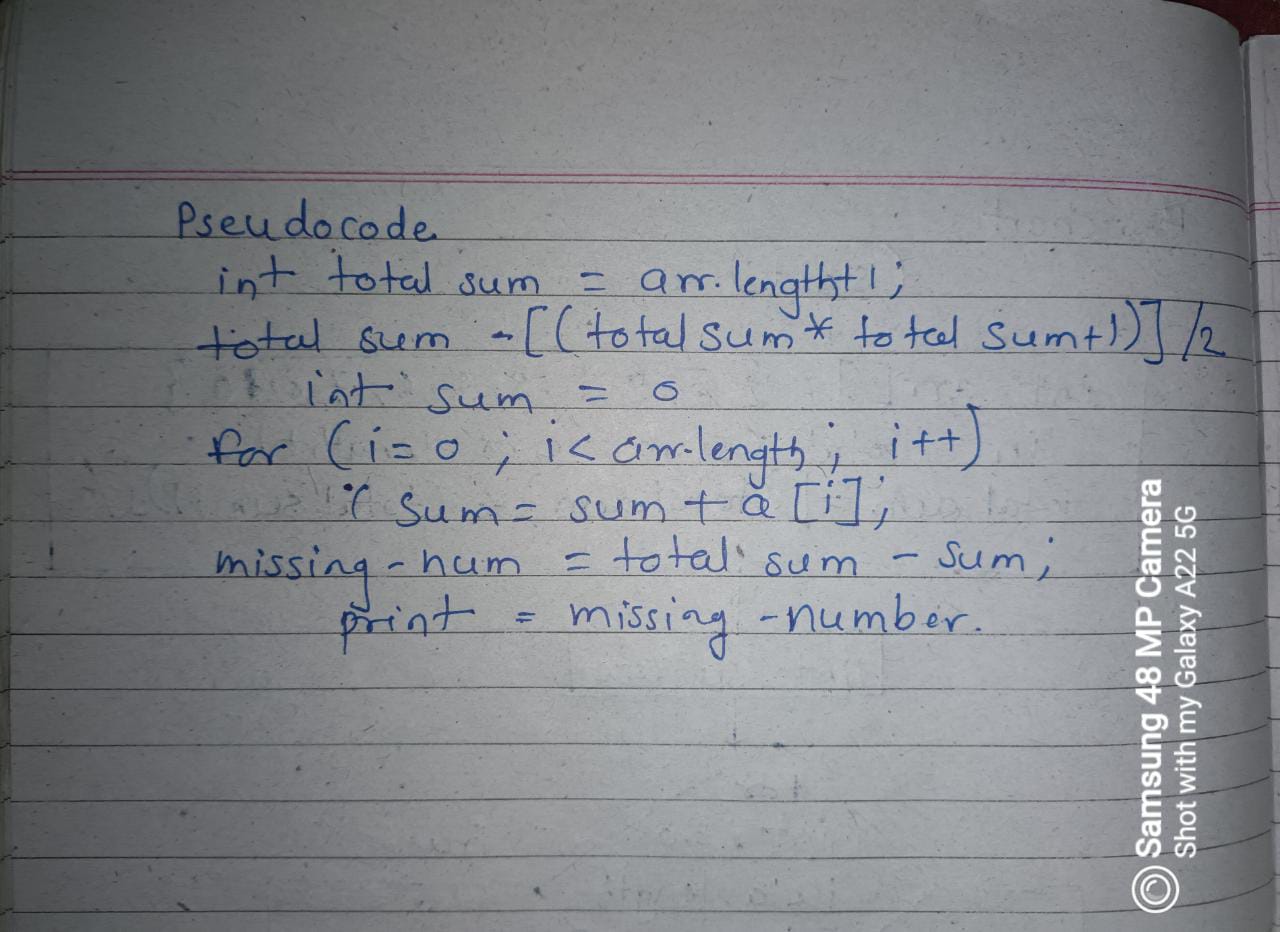 Pseudocode
int total sum = arr.length+1;
total sum -[(total sum * total sum+1)]/2
int sum = 0
for (i=0 ; i< arr.length ; i++)
{ sum = sum + a [i];
missing-num = total sum - sum;
print = missing -number.
Samsung 48 MP Camera
Shot with my Galaxy A22 5G